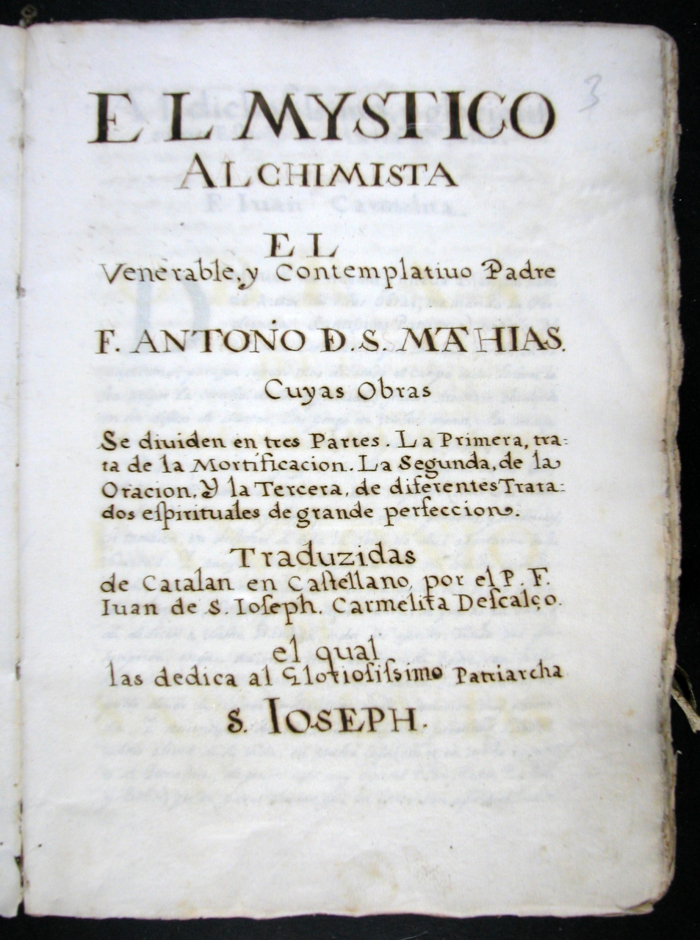 3
EL MYSTICO
ALCHIMISTA
EL
Venerable, y Contemplatiuo Padre
F. ANTOÑO D. S. MATHIAS.
Cuyas Obras
Se diuiden en tres Partes. La Primera, tra:
ta de la Mortificacion. La Segunda, de la
Oracion. Y la Tercera, de diferentes Trata:
dos eſpirituales de grande perfeccion.
Traduzidas
de Catalan en Caſtellano, por el P. F.
Iuan de S. Ioſeph. Carmelita Deſcalço.
el qual
las dedica al Glorioſiſsimo Patriarcha
S. IOSEPH.